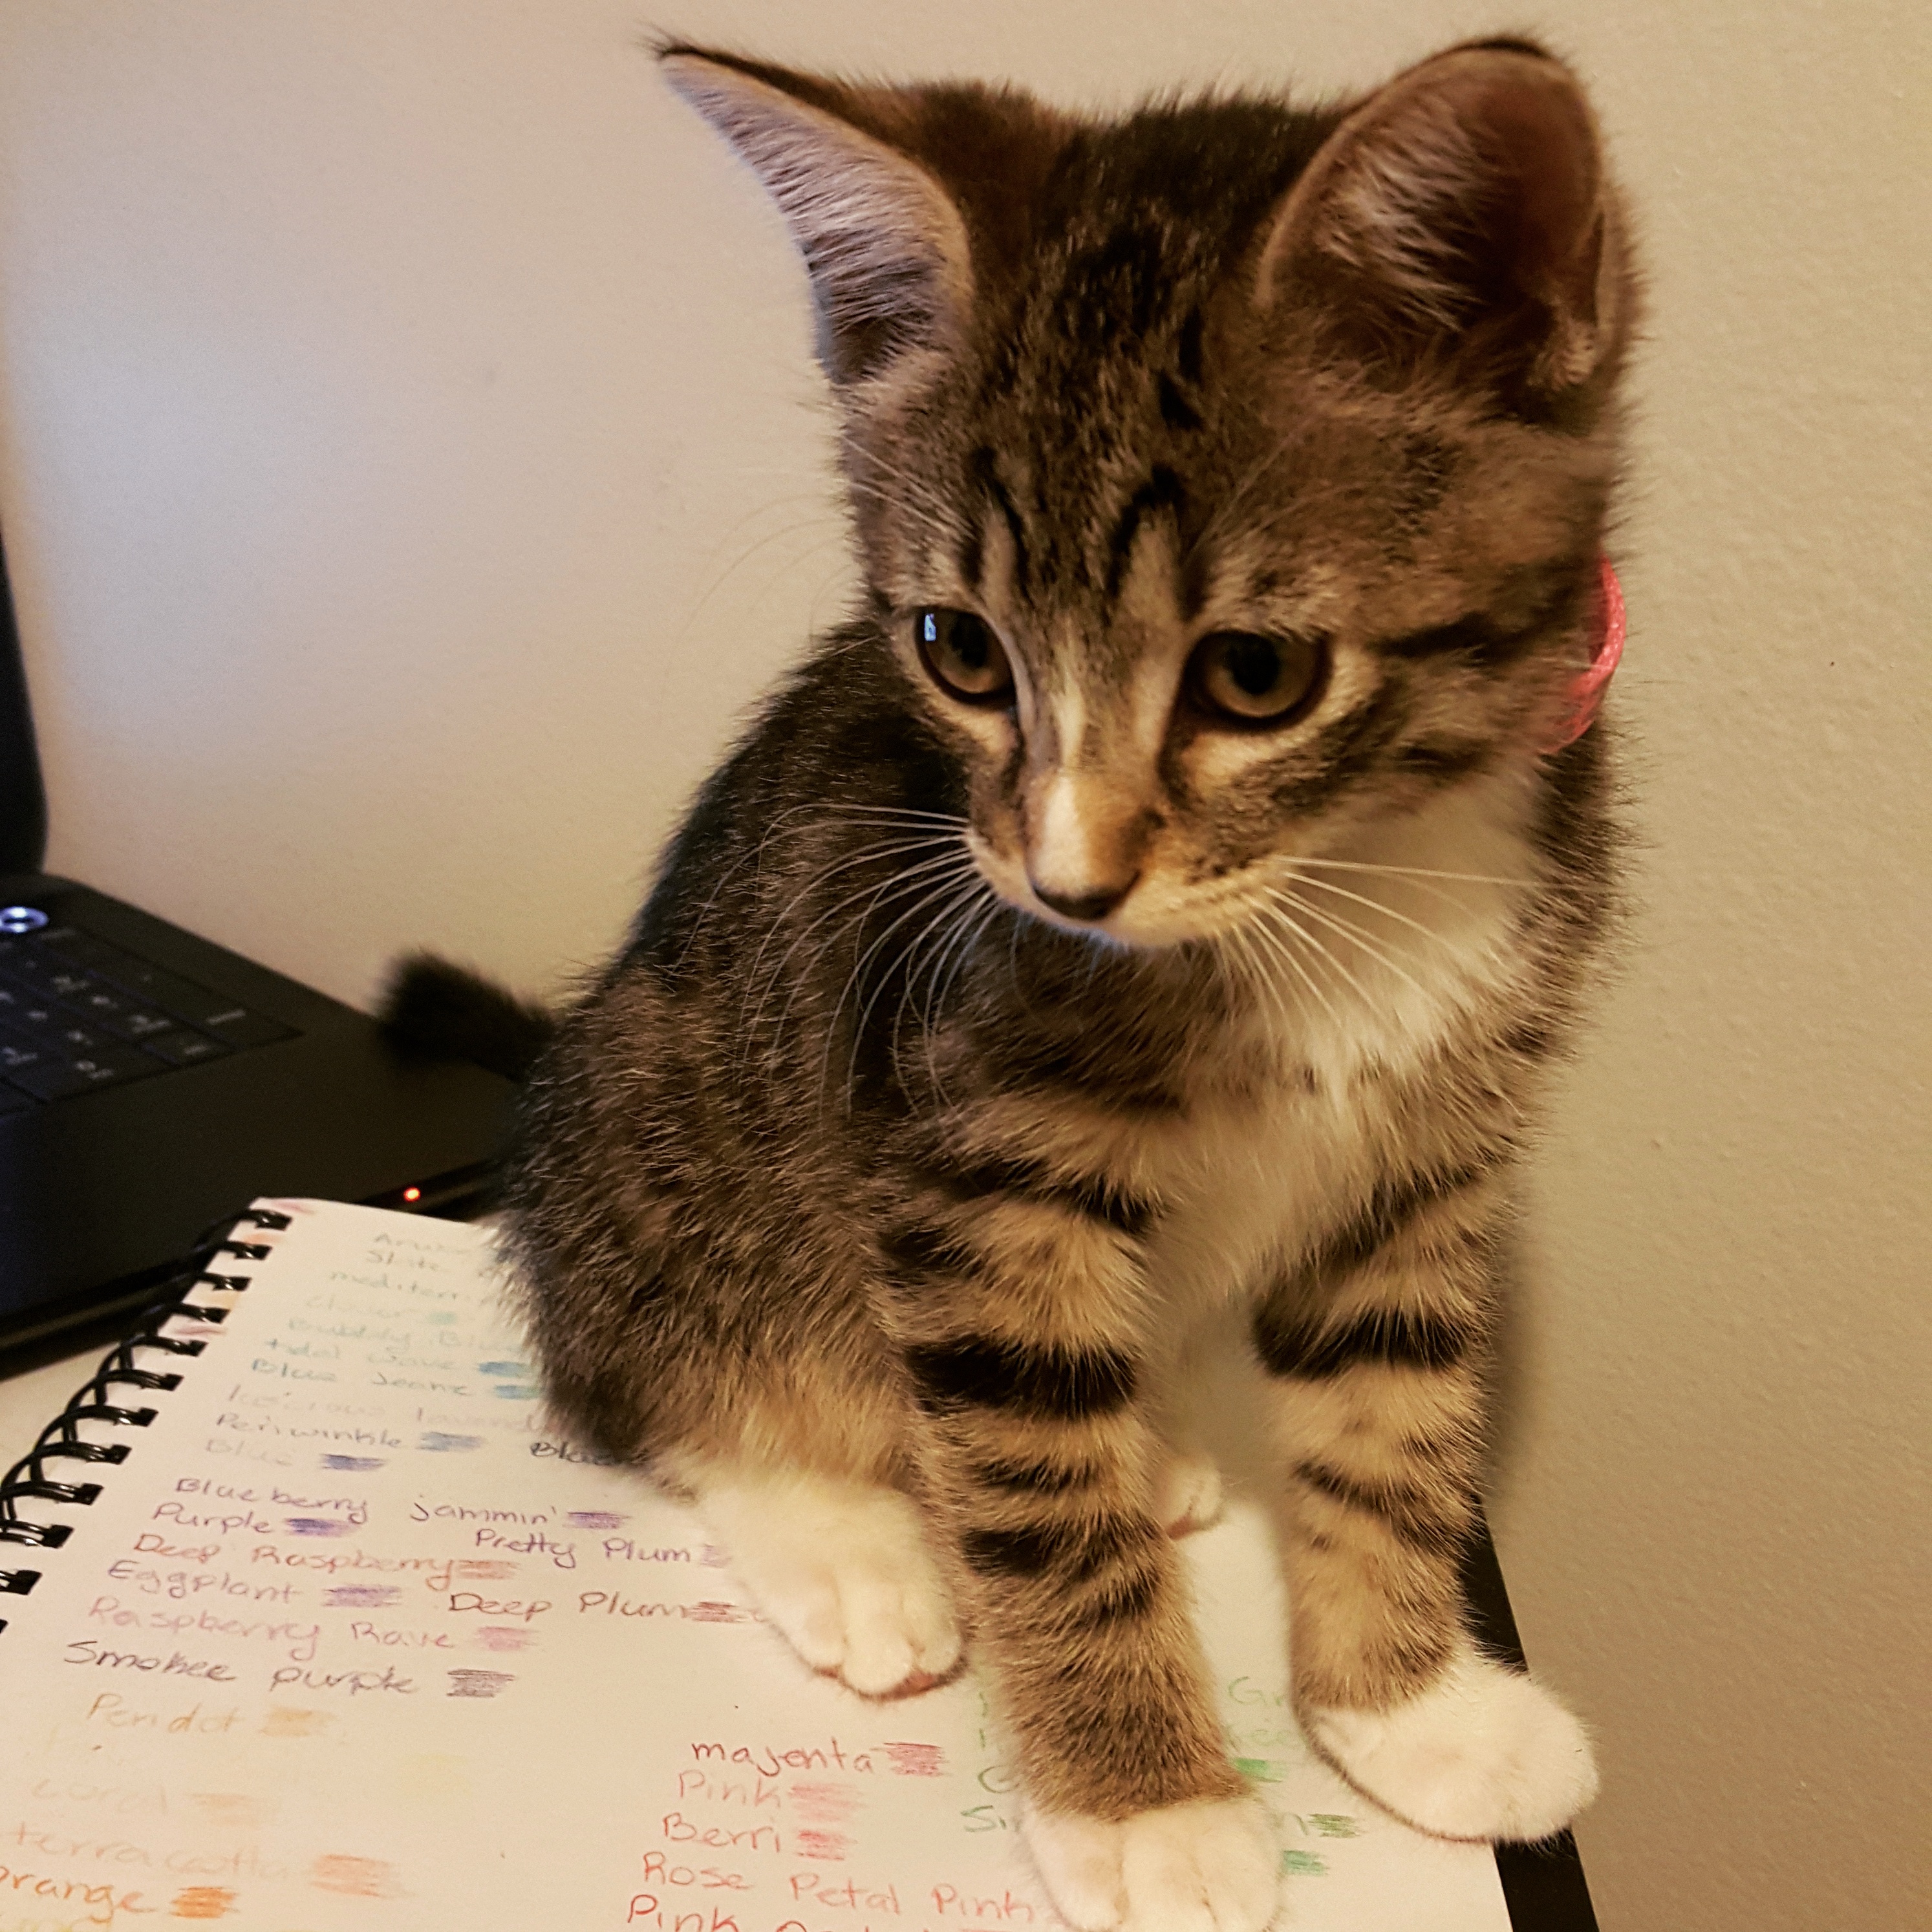 Slate
Clover
Bubbly Blu
tidal wave
Blue Jeanz
Periwinkle
Blue
Blueberry jammin'
Purple
Pretty Plum
Deep Raspberry
Eggplant
Deep Plum
Raspberry Rave
Smokee purple
Peridot
coral
terracotta
orange
majenta
Pink
Berri
Rose Petal Pink
Pink